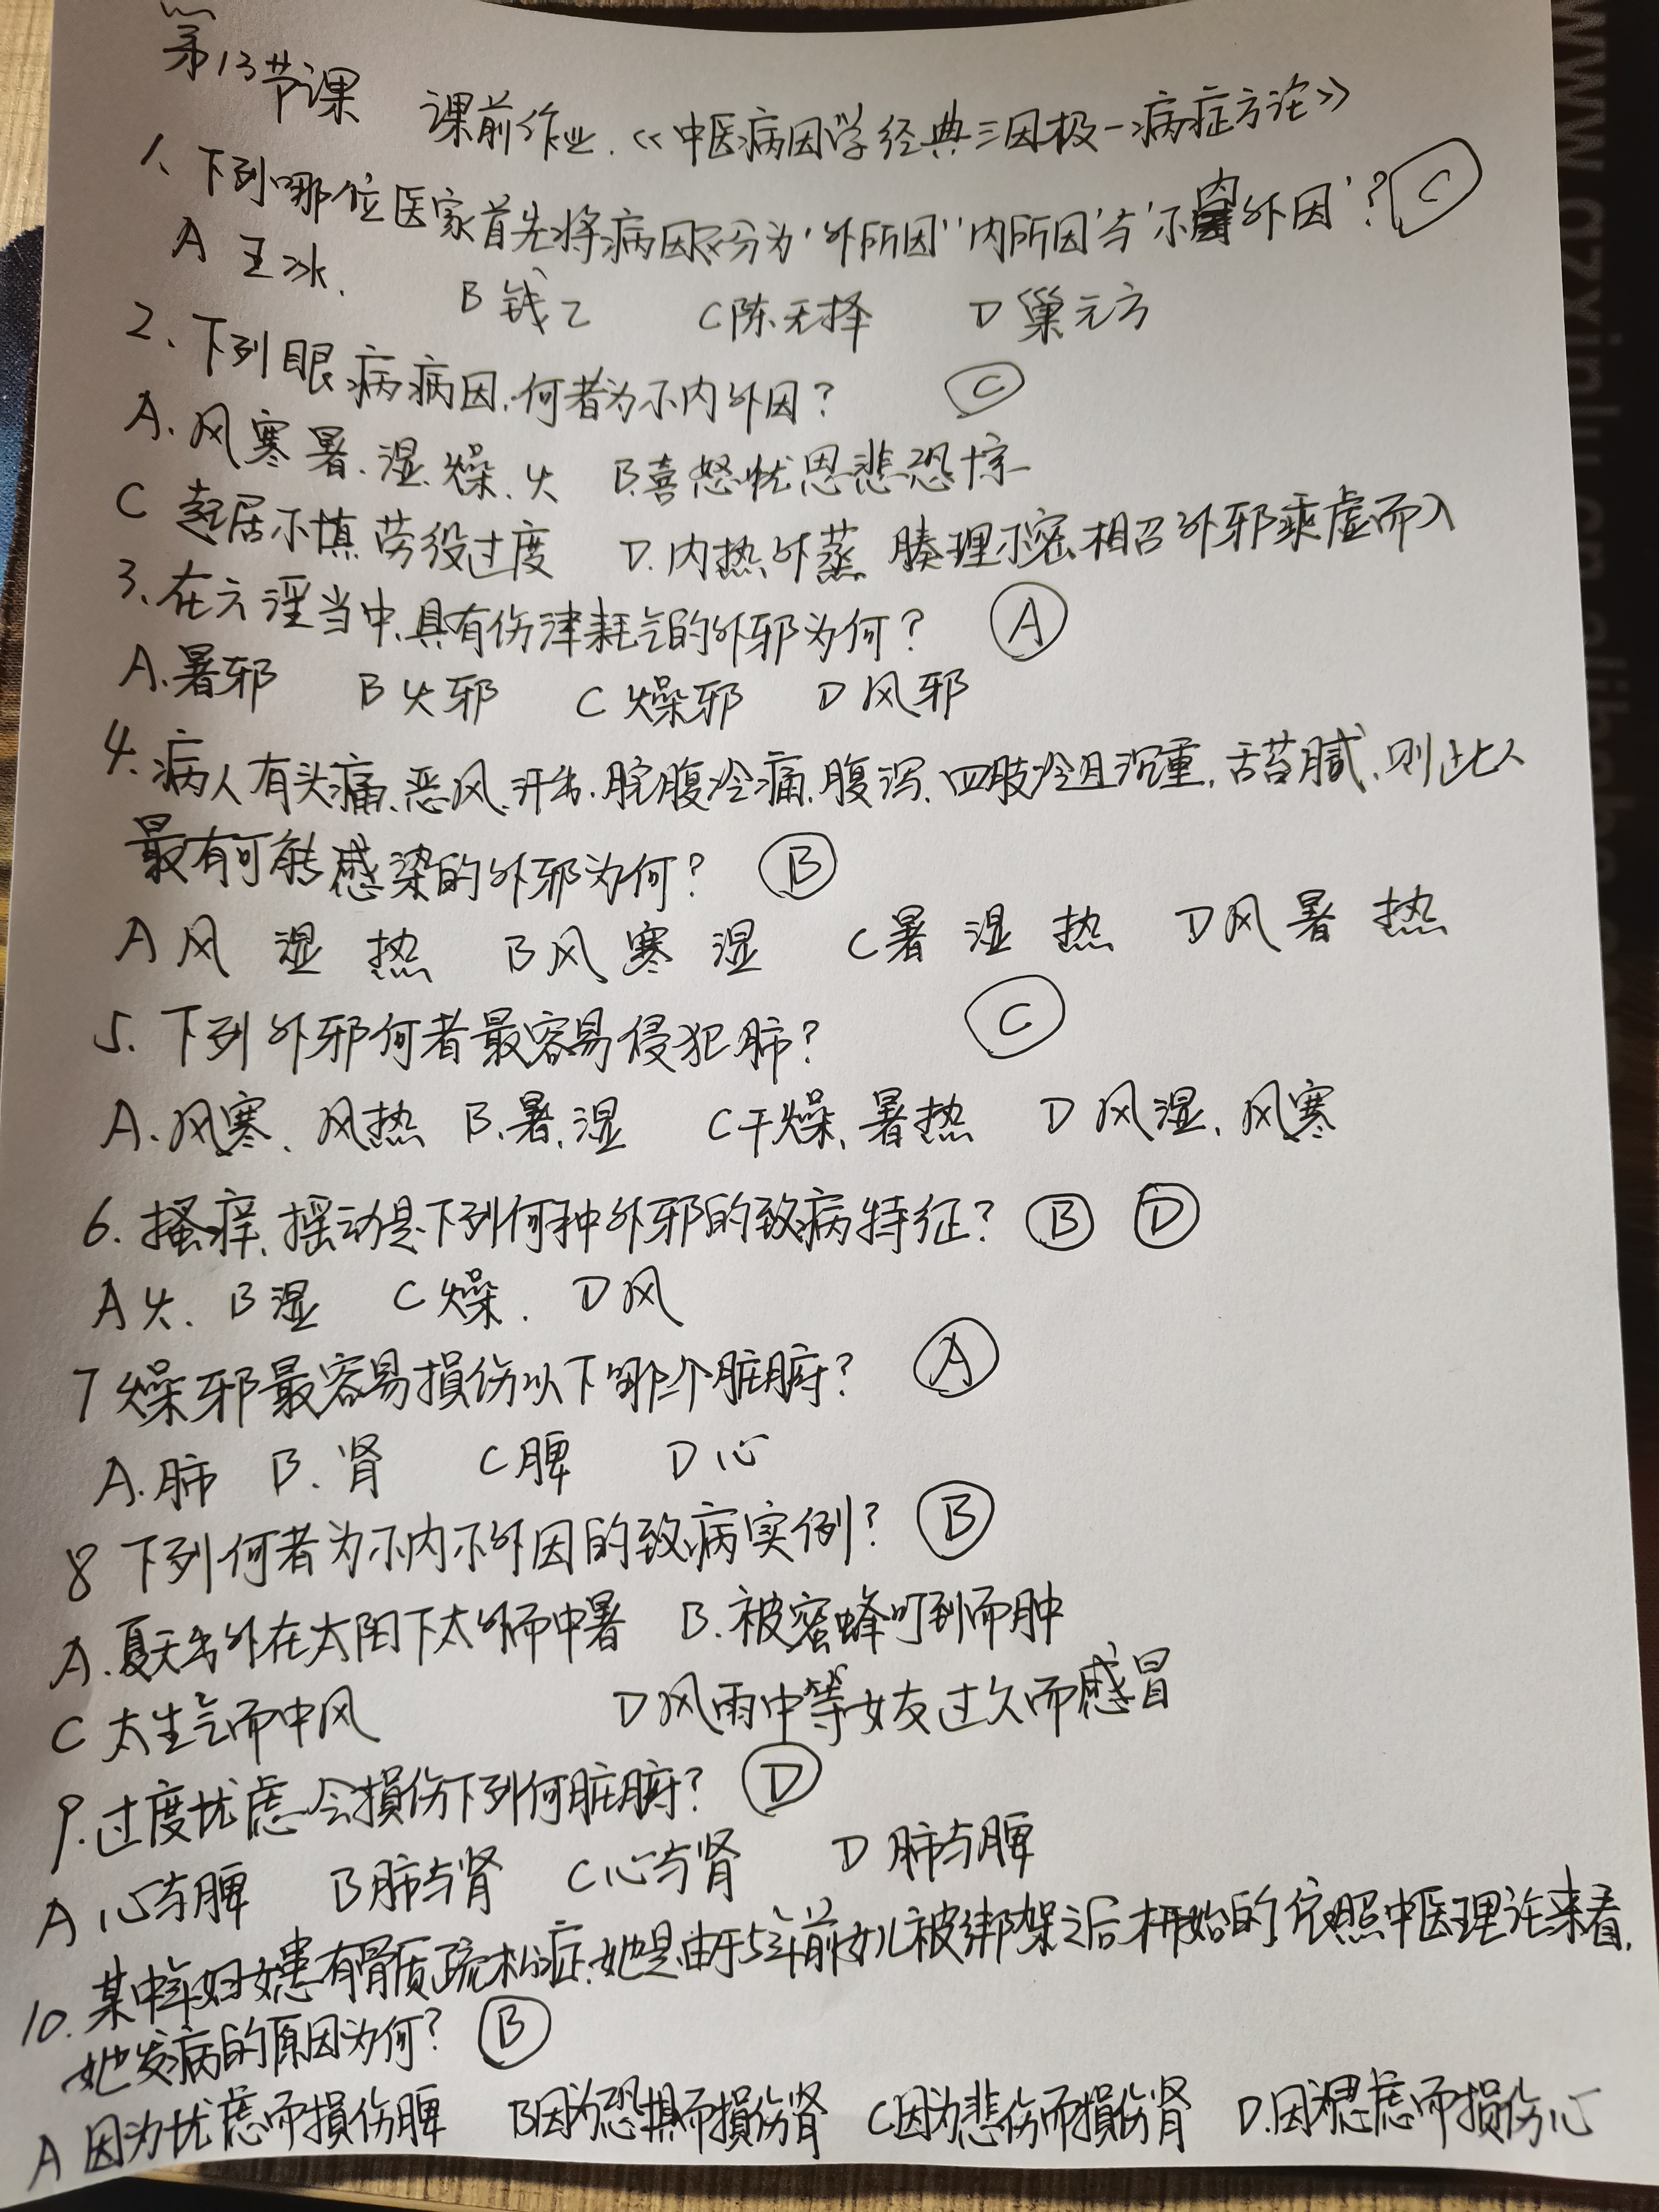 第13节课
课前作业.《中医病因学经典三因极一病症方论》
1、下列哪位医家首先将病因区分为'外所因''内所因'与'不内外因'? C
A 王冰. B 钱乙 C 陈无择 D 巢元方
2、下列眼病病因,何者为不内外因? C
A. 风寒暑.湿.燥.火 B.喜怒忧思悲恐惊
C 起居不慎 劳役过度 D.内热外蒸 腠理不密 相召外邪乘虚而入
3、在六淫当中,具有伤津耗气的外邪为何? A
A.暑邪 B 火邪 C 燥邪 D 风邪
4.病人有头痛、恶风.汗出.脘腹冷痛.腹泻、四肢冷且沉重,舌苔腻,则此人
最有可能感染的外邪为何? B
A 风 湿 热 B 风 寒 湿 C 暑 湿 热 D 风 暑 热
5. 下列外邪何者最容易侵犯肺? C
A.风寒、风热 B.暑.湿 C 干燥,暑热 D 风湿,风寒
6. 搔痒,摇动是下列何种外邪的致病特征? B D
A 火. B 湿 C 燥. D 风
7 燥邪最容易损伤以下哪个脏腑? A
A.肺 B.肾 C 脾 D 心
8 下列何者为不内不外因的致病实例? B
A.夏天出外在太阳下太久而中暑 B.被蜜蜂叮到而肿
C 太生气而中风 D 风雨中等女友过久而感冒
9.过度忧虑会损伤下列何脏腑? D
A 心与脾 B 肺与肾 C 心与肾 D 肺与脾
10. 某中年妇女患有骨质疏松症,她是由于5年前女儿被绑架之后才开始的 依照中医理论来看,
她发病的原因为何? B
A 因为忧虑而损伤脾 B 因为恐惧而损伤肾 C 因为悲伤而损伤肾 D.因为思虑而损伤心